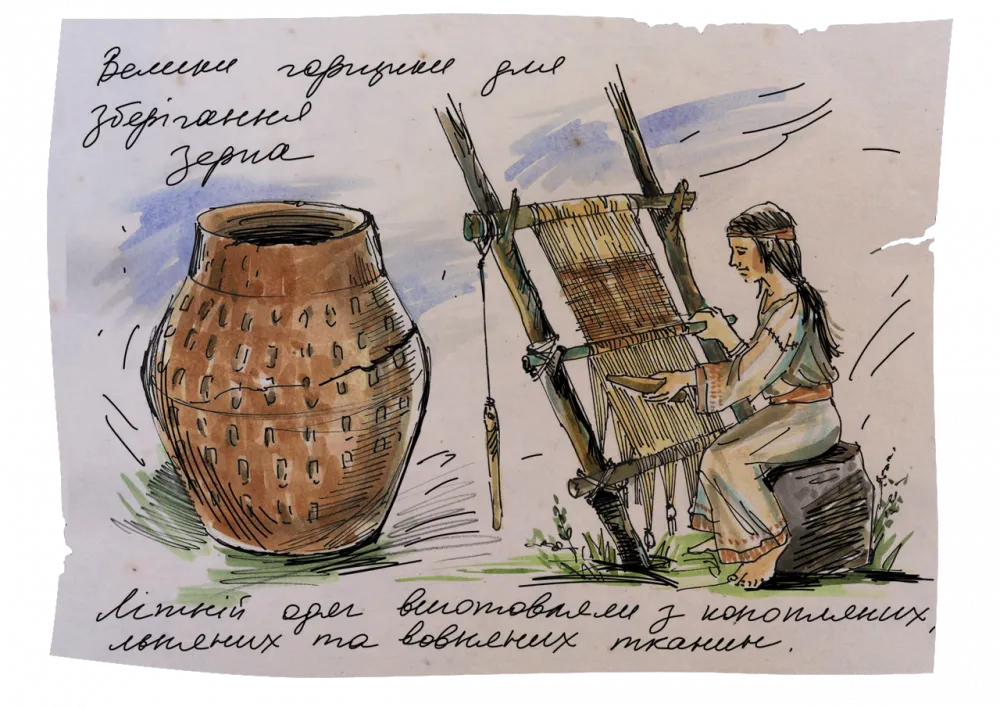 Велики горщики для
зберігання
зерна
Літній одяг виготовляли з конопляних,
льняних та вовняних тканин.